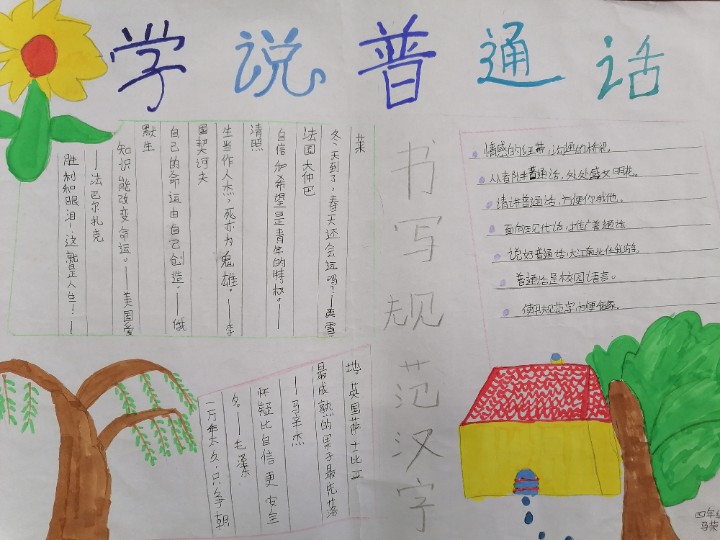 学说普通话
胜利和眼泪—这就是人生!—
—法巴尔扎克
知识能改变命运。——美国爱
默生
自己的命运由自己创造.——俄
国契诃夫
生当作人杰,死亦为鬼雄。——李
清照
自信和希望是青年的特权。——
法国大仲巴
冬天到了,春天还会远吗?——英雪
莱
书写规范汉字
情感的纽带,沟通的桥梁。
普通话,处处盛文明花。
请讲普通话,方便你我他。
面向现代话,推广普通话
说好普通话,大江南北任我行。
普通话是校园语言。
使用规范字,方便
一万年太久,只争朝
夕。——毛泽
怀疑比自信更安全
——马辛杰
最成熟的果子最先落
地.英国莎士比亚
四年